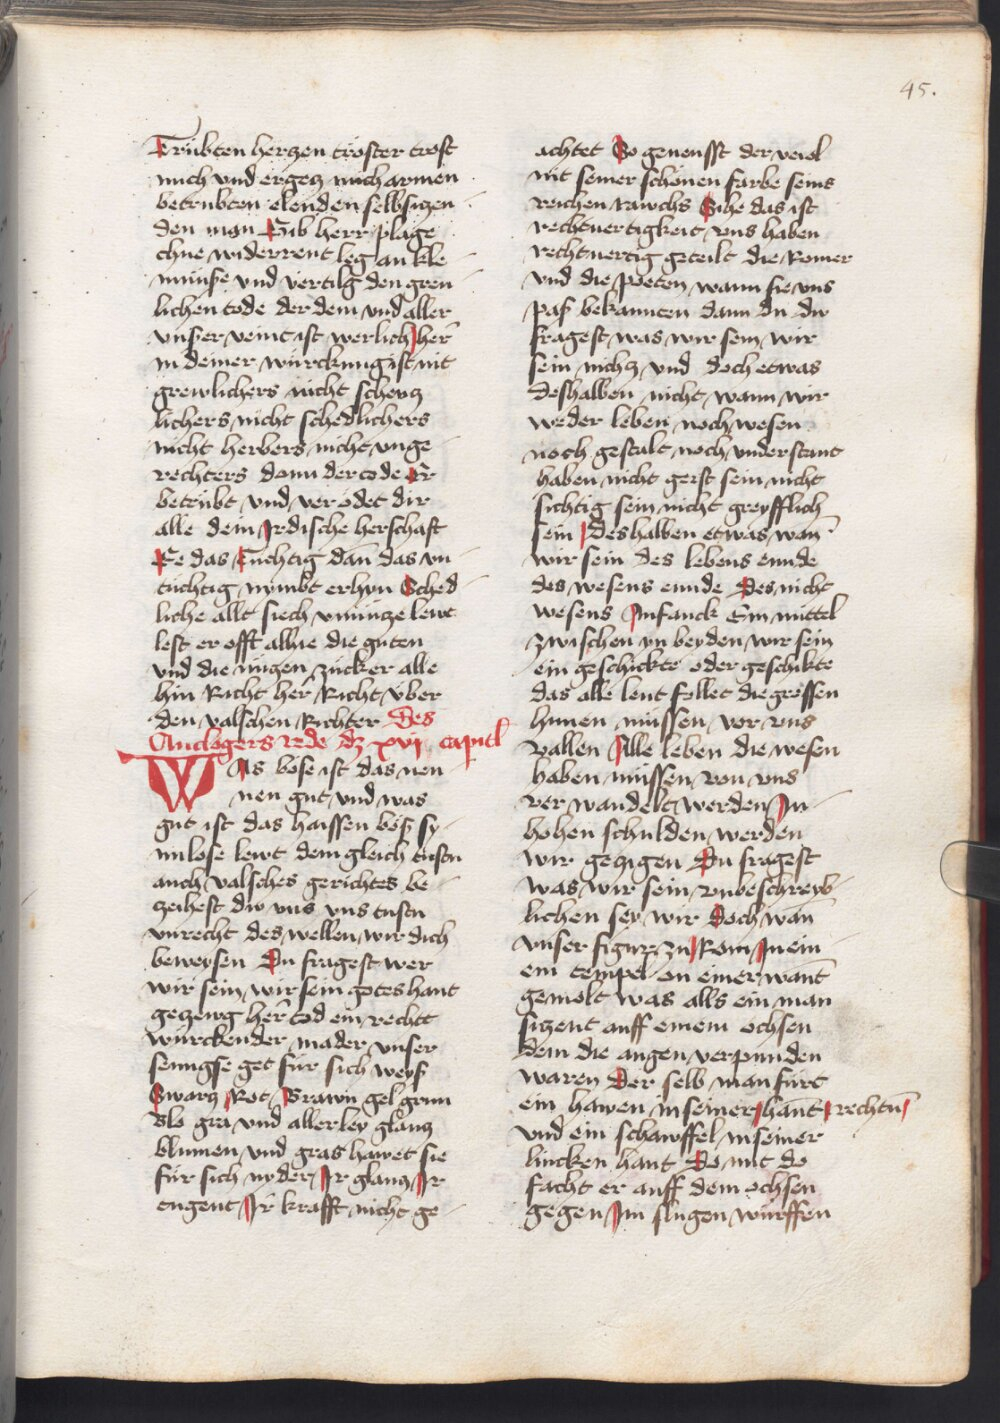 45.
Trübten herczen tröster tröst
mich vnd ergecz mich armen
betrubten elenden selbsiczen
den man Gib herr plage
chue widerrent leg an kle
münße vnd vertilg den greu
lichen tode der dein vnd aller
vnßer veint ist werlich her
in deiner würckung ist nit
grewlichers nicht scheucz
lichers nicht schedlichers
nicht herbers nicht vnge
rechters dann der tode Er
betrübt vnd verödet dir
alle dein Irdische herschaft
Ee das Tüchtig dan das vn
tüchtig nymbt er hyn Sched
liche allt siech vnnücze lewt
lest er offt alhie die guten
vnd die nüczen zücker alle
hin Richt her Richt vber
den valschen Richter Des
Anclegers rede dz xvj capitel
WAs böse ist das nen
nen gut vnd was
gut ist das haissen böß sy
nnlose lewt dem gleich tustu
auch valsches gerichtes be
zeihest dw vns vns tustu
vnrecht des wellen wir dich
beweysen Du fragest wer
wir sein wir sein gotes hant
geczewg her tod ein rechtt
würckender mader vnser
senngse get für sich weyß
Swarcz Rot Brawn gel grun
Blo gra vnd allerley glancz
blumen vnd gras hawet sie
für sich nyder Ir glancz Ir
tugent Ir krafft nicht ge
achtet So geneusst der veiol
nit seiner schönen farbe seins
reichen rawchs Sihe das ist
rechtuertigkeit vns haben
rechtuertig geteilt die Romer
vnd die poeten wann sie vns
paß bekannten dann du dw
fragest was wir sein wir
sein nichcz vnd doch etwas
deshalben nicht wann wir
weder leben noch wesen
noch gestalt noch vnderstant
haben nicht geist sein nicht
sichtig sein nicht greyfflich
sein Deshalben etwas wan
wir sein des lebens ennde
des wesens ennde Des nicht
wesens Anfanck Ein mittel
zwischen yn beyden wir sein
ein geschickte oder geschikte
das alle leut fellet die grossen
hunen müssen vor vns
vallen Alle leben die wesen
haben müssen von vns
verwandelt werden In
hohen schulden werden
wir geczigen Du fragest
was wir sein vnbeschreyb
lichen sey wir Doch wan
vnser figur zu Rom In ein
em tempel an einer want
gemolt was alls ein man
siczent auff einem ochsen
dem die augen verpunden
waren Der selb man fürt
ein hawen in seiner hant rechtn
vnd ein schawffel in seiner
lincken hant Do mit do
facht er auff dem ochsen
gegen Im slugen würffen